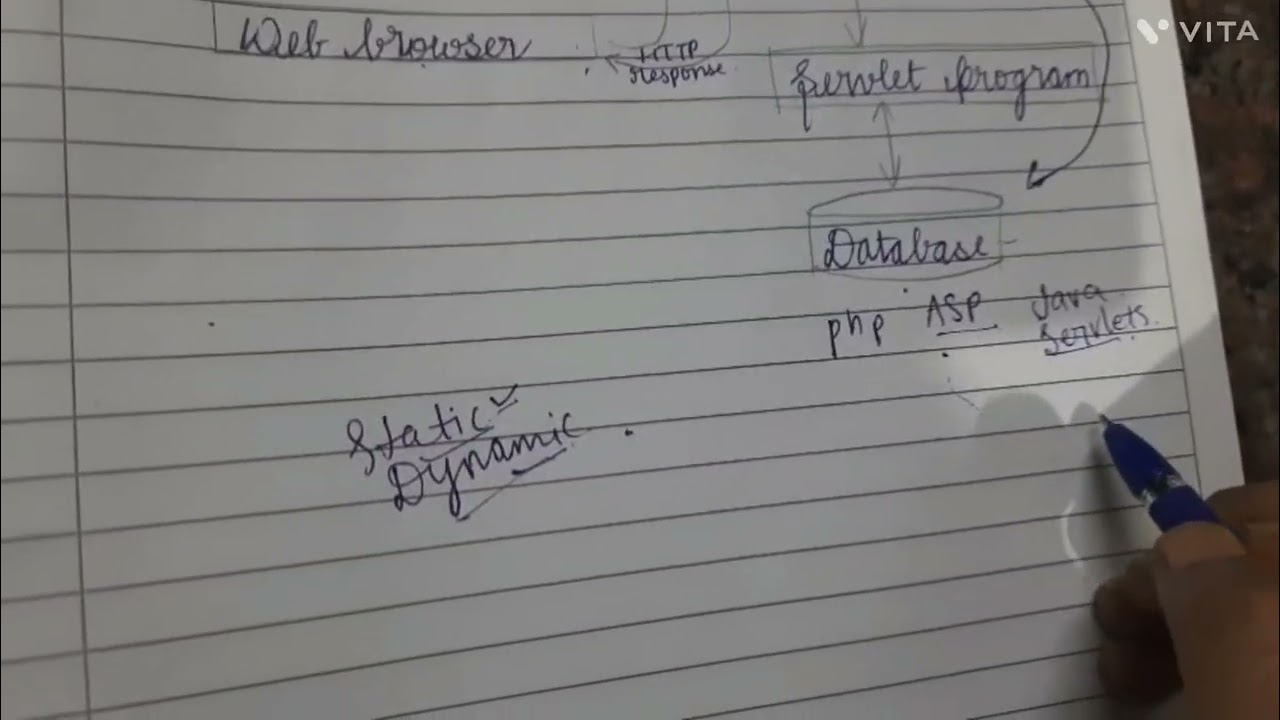 VITA
Web browser
HTTP
response
Servlet program
Database
php ASP Java
Servlets.
Static
Dynamic